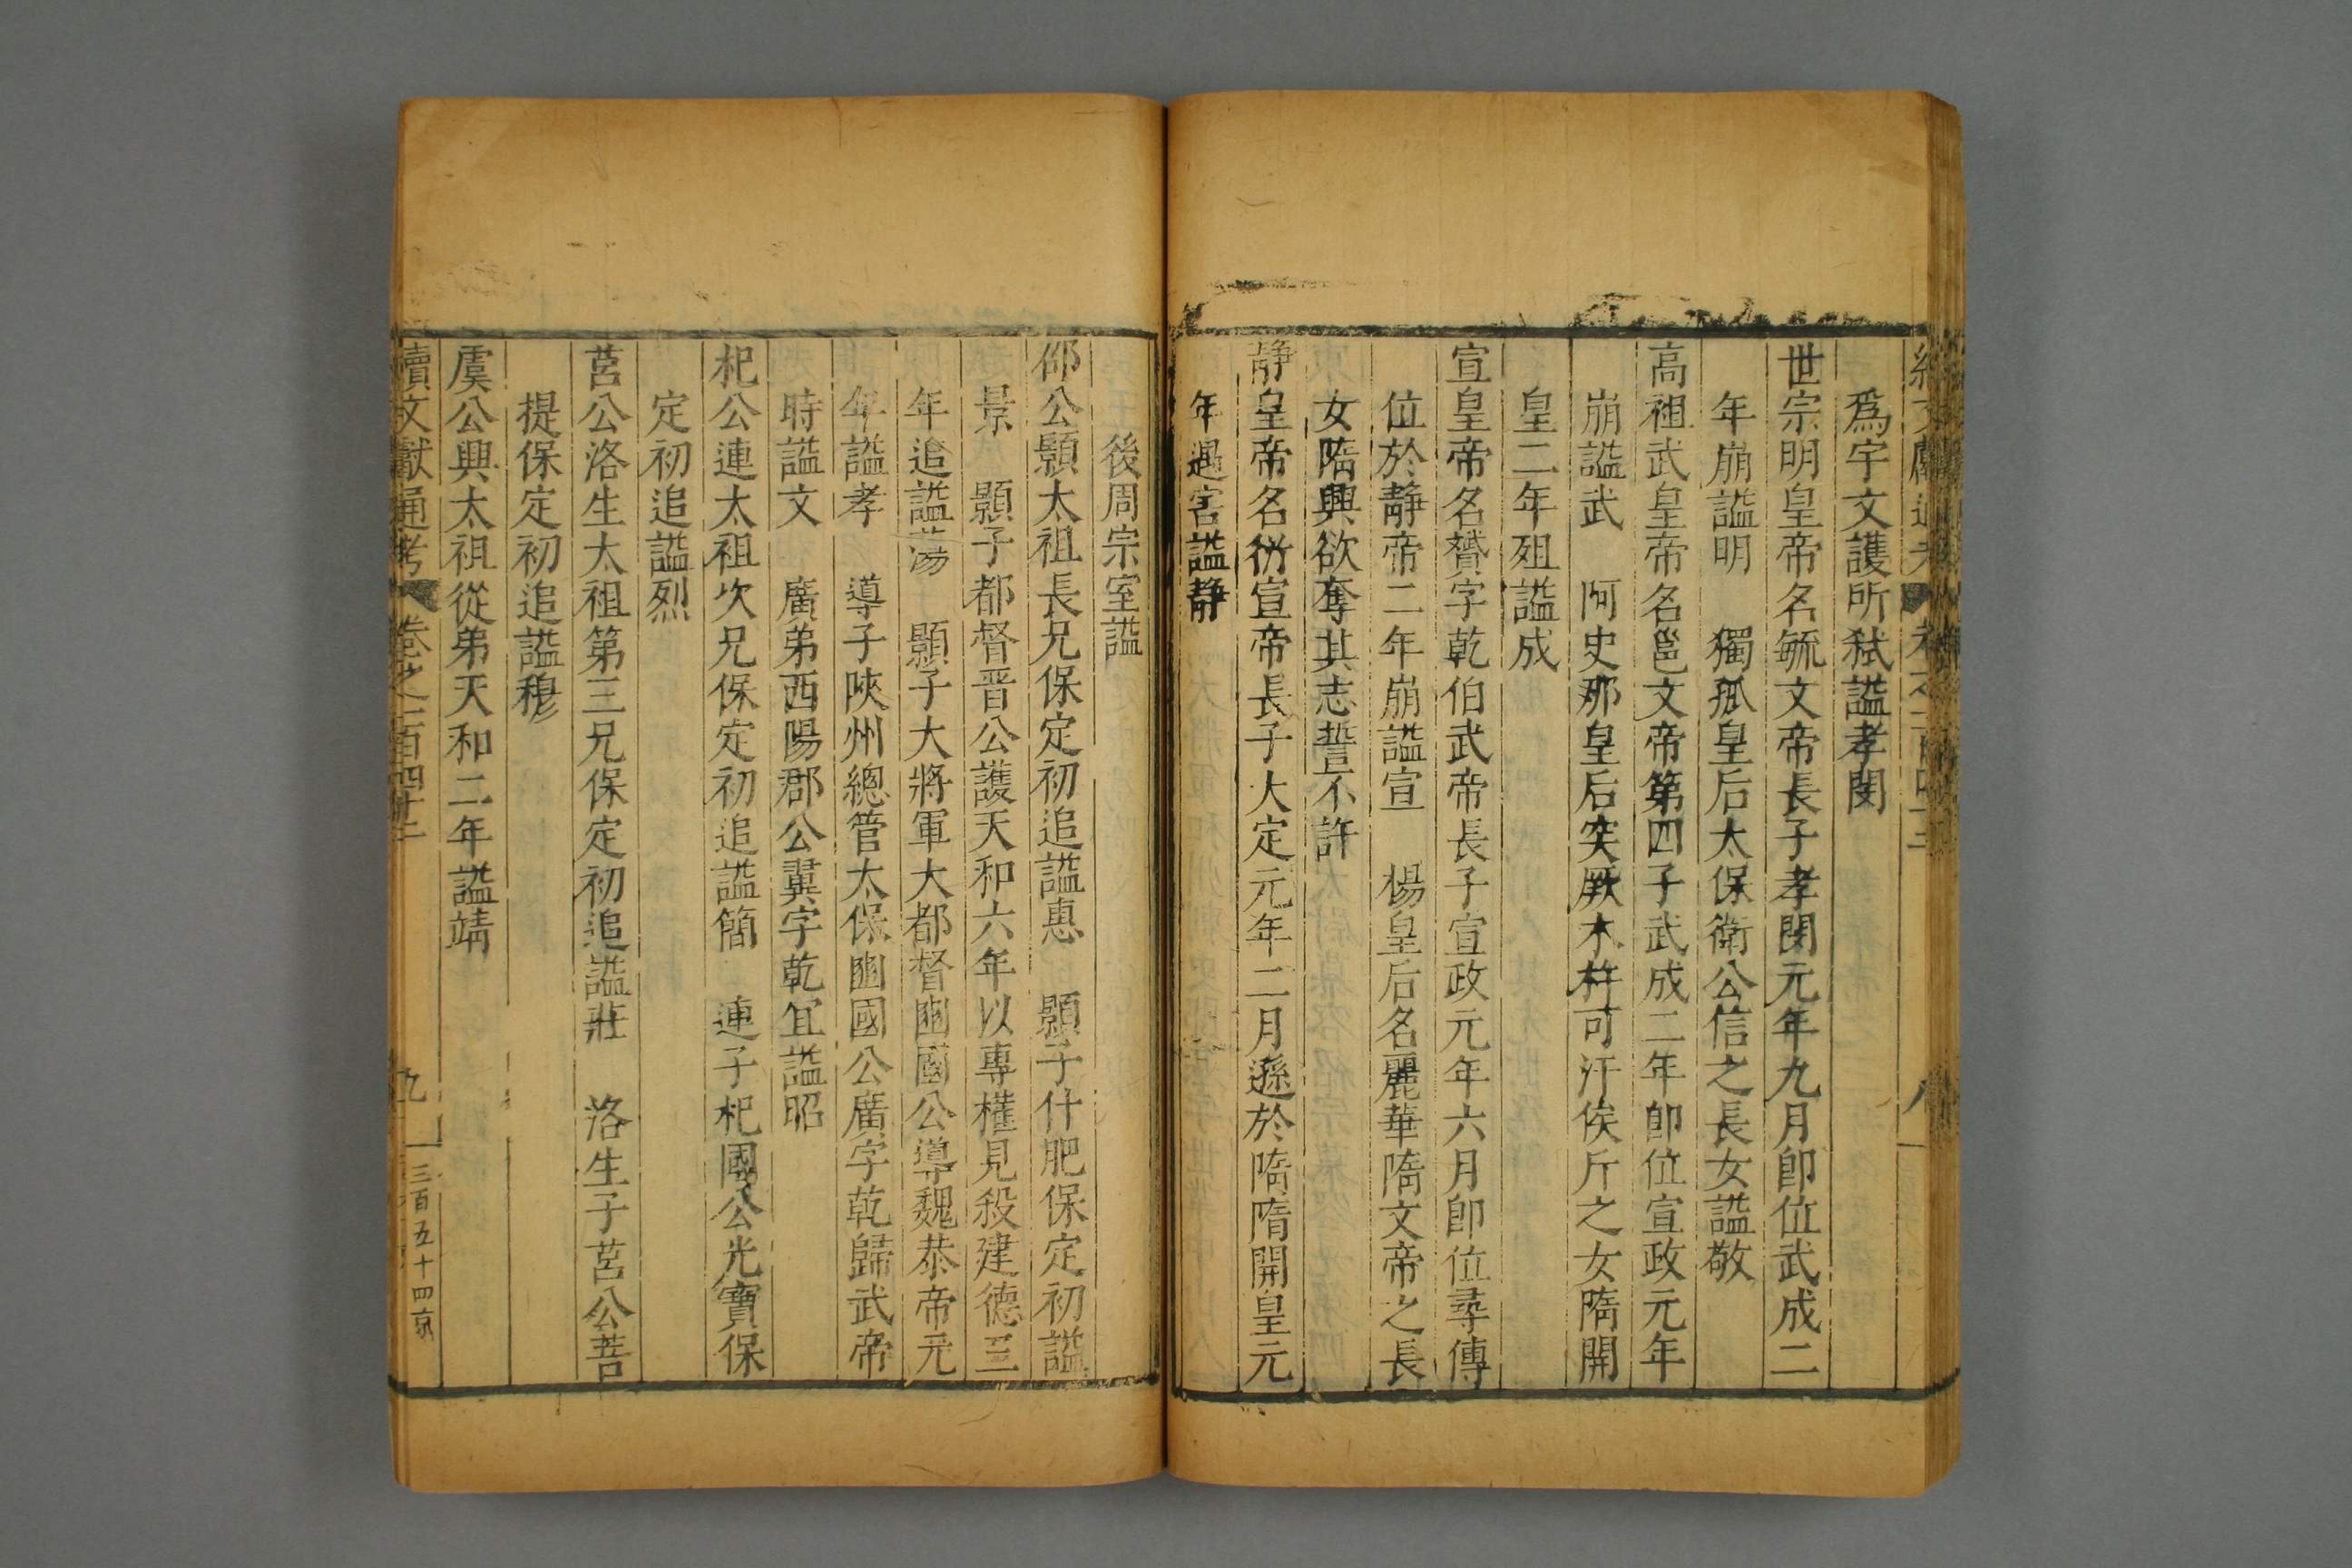 為宇文護所弑謚孝閔
世宗明皇帝名毓文帝長子孝閔元年九月卽位武成二
年崩謚明 獨孤皇后太保衛公信之長女謚敬
高祖武皇帝名邕文帝第四子武成二年卽位宣政元年
崩謚武 阿史那皇后突厥木杵可汗俟斤之女隋開
皇二年殂謚成
宣皇帝名贇字乾伯武帝長子宣政元年六月卽位尋傳
位於靜帝二年崩謚宣 楊皇后名麗華隋文帝之長
女隋興欲奪其志誓不許
靜皇帝名衍宣帝長子大定元年二月遜於隋隋開皇元
年遇害謚靜
後周宗室謚
邵公顥太祖長兄保定初追謚惠 顥子什肥保定初謚
景 顥子都督晋公護天和六年以專權見殺建德三
年追謚蕩 顥子大將軍大都督豳國公導魏恭帝元
年謚孝 導子陝州總管太保豳國公廣字乾歸武帝
時謚文 廣弟西陽郡公翼字乾宜謚昭
杞公連太祖次兄保定初追謚簡 連子杞國公光寶保
定初追謚烈
莒公洛生太祖第三兄保定初追謚莊 洛生子莒公菩
提保定初追謚穆
虞公興太祖從弟天和二年謚靖
續文獻通考 卷之一百四十二 九 三百五十四